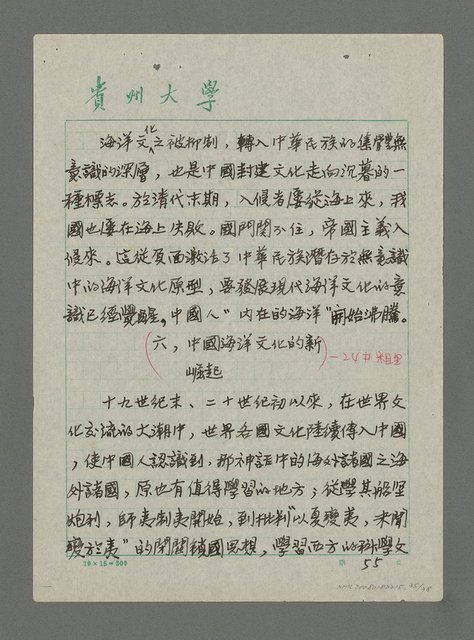 貴州大學
海洋文化之被抑制，轉入中華民族的集體無
意識的深層，也是中國封建文化走向沉暮的一
種標志。於清代末期，入侵者屢從海上來，我
國也屢在海上失敗。國門関不住，帝國主義入
侵來。這從負面激活了中華民族潛在於無意識
中的海洋文化原型，要發展現代海洋文化的意
識已經覺醒，中國人"內在的海洋"開始沸騰。
六，中國海洋文化的新
崛起
—24中粗黑
十九世紀末、二十世紀初以來，在世界文
化交流的大潮中，世界各國文化陸續傳入中國
，使中國人認識到，那神話中的海外諸國之海
外諸國，原也有值得學習的地方；從學其船堅
炮利，師夷制夷開始，到批判"以夏變夷，未聞
變於夷"的閉關鎖國思想，學習西方的科學文
20×15=300
第 55